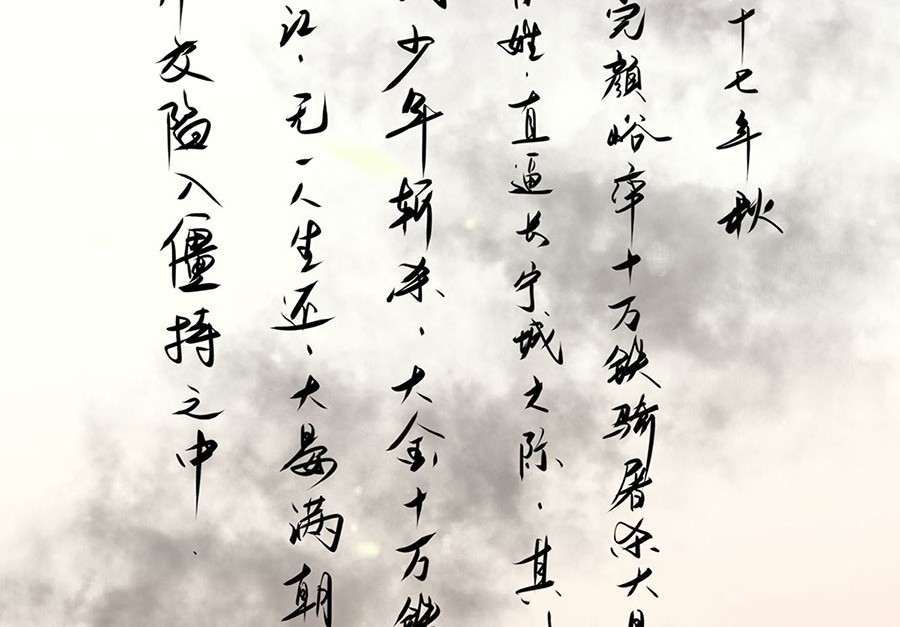 十七年秋
完颜峪率十万铁骑屠杀大
姓,直逼长宁城之际,其
少年斩杀,大金十万铁
江,无一人生还,大晏满朝
交陷入僵持之中.